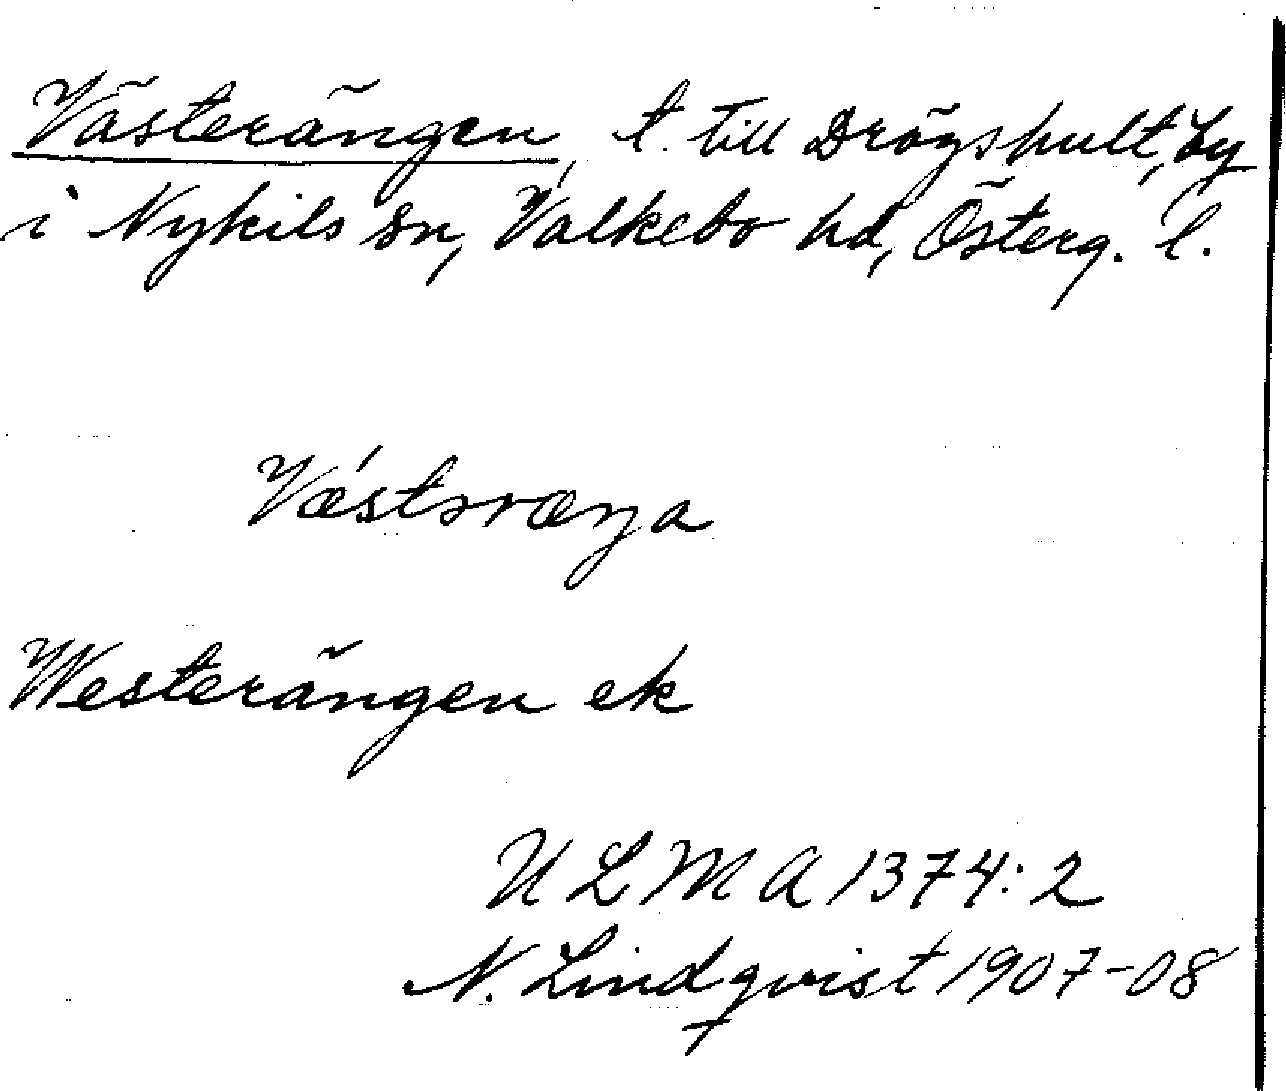 Västerängen, t. till Drögshult, by
i Nykils sn, Valkebo hd, Österg. l.
Vǽstəræŋa
Westerängen ek
U L M A 1374:2
N. Lindqvist 1907-08